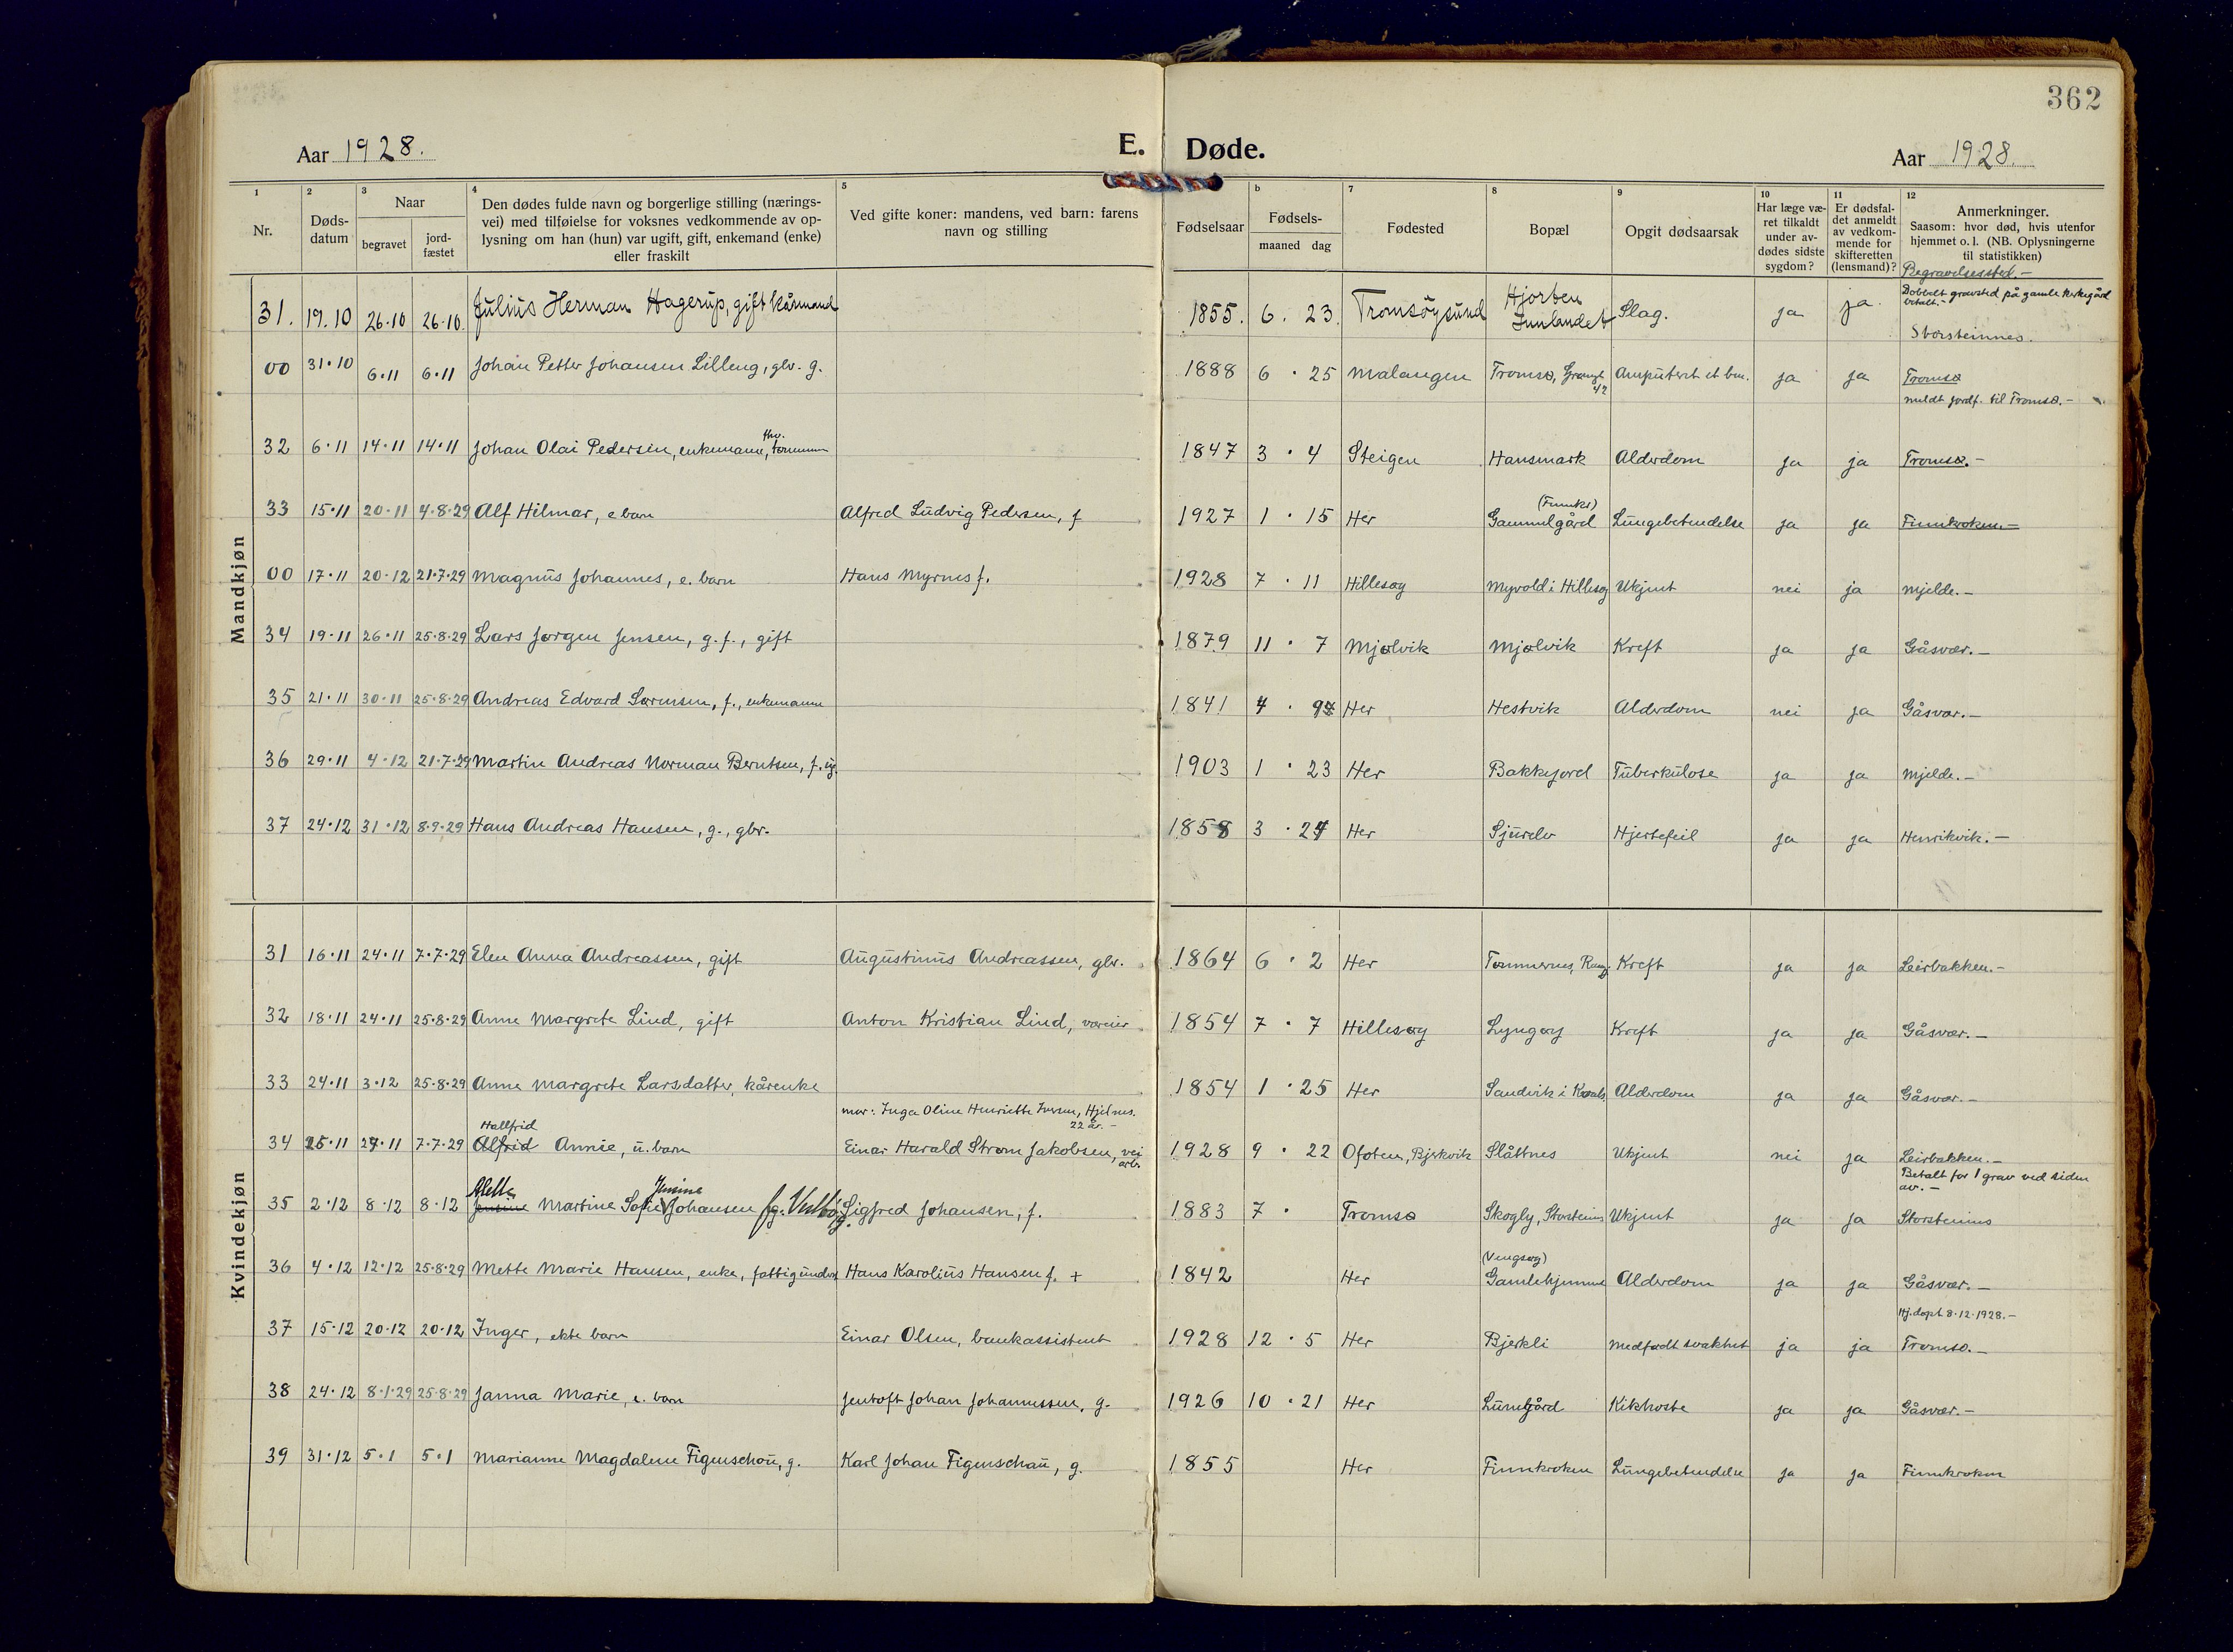 362
Aar 1928. E. Døde. Aar 1928.
1 2 3 4 5 b 7 8 9 10 11 12
Nr. Døds-datum Naar begravet jord-fæstet
Den dødes fulde navn og borgerlige stilling (nærings-
vei) med tilføielse for voksnes vedkommende av op-
lysning om han (hun) var ugift, gift, enkemand (enke)
eller fraskilt
Ved gifte koner: mandens, ved barn: farens
navn og stilling
Fødselsaar Fødsels- maaned dag Fødested Bopæl Opgit dødsaarsak
Har læge væ-
ret tilkaldt
under av-
dødes sidste
sygdom?
Er dødsfal-
det anmeldt
av vedkom-
mende for
skifteretten
(lensmand)?
Anmerkninger.
Saasom: hvor død, hvis utenfor
hjemmet o. l. (NB. Oplysningerne
til statistikken)
Begravelsessted.-
Mandkjøn
Dobbelt gravsted på gamle kirkegård
betalt.-
31. 19.10 26.10 26.10. Julius Herman Hagerup, gift kårmand 1855. 6. 23. Tromsöysund Hjorten Innlandet Slag. ja ja. Storsteinnes.
00 31.10 6.11 6.11 Johan Petter Johansen Lilleng, glv. g. 1888 6 . 25 Malangen Tromsø, 42 Amputert et ben. ja ja Tromsø
meldt jordf. til Tromsø.-
32 6.11 14.11 14.11 Johan Olai Pedersen, enkemann, fhv. 1847 3 . 4 Steigen Hansmark Alderdom ja ja Tromsø.-
33 15.11 20.11 4.8.29 Alf Hilmar, e barn Alfred Ludvig Pedersen, f 1927 1 . 15 Her (Finnkr) Gammelgård Lungebetendelse ja ja Finnkroken.-
00 17.11 20.12 21.7.29 Magnus Johannes, e. barn Hans Myrnes f. 1928 7 . 11 Hillesøy Myrvold i Hillesøy Ukjent nei ja Mjelde.-
34 19.11 26.11 25.8.29 Lars Jørgen Jensen, g. f., gift 1879 11 . 7 Mjølvik Mjølvik Kreft ja ja Gåsvær.-
35 21.11 30.11 25.8.29 Andreas Edvard Sørensen, f., enkemann 1841 4 . Her Hestvik Alderdom nei ja Gåsvær.-
36 29.11 4.12 21.7.29 Martin Andreas Norman Berntsen, f. ug. 1903 1 . 23 Her Bakkejord Tuberkulose ja ja Mjelde.-
37 24.12 31.12 8.9.29 Hans Andreas Hansen, g., gbr. 1858 3 . 24 Her Sjurelv Hjertefeil ja ja Henrikvik.-
Kvindekjøn
31 16.11 24.11 7.7.29 Elen Anna Andreassen, gift Augustinus Andreassen, gbr. 1864 6 . 2 Her Tønnernes, Kreft ja ja Leirbakken.-
32 18.11 24.11 25.8.29 Anne Margrete Lind, gift Anton Kristian Lind, vøreier 1854 7 . 7 Hillesøy Lyngøy Kreft ja ja Gåsvær.-
33 24.11 3.12 25.8.29 Anne Margrete Larsdatter, kårenke 1854 1 . 25 Her Sandvik i Kvals Alderdom ja ja Gåsvær.-
mor: Inga Oline Henriette Iversen, Hjelnes.
22 år.-
34 25.11 29.11 7.7.29 Alfrid Hallfrid Annie, u. barn Einar Harald Strøm Jakobsen, vei arb. 1928 9 . 22 Ofoten, Bjerkvik Slåttnes Ukjent nei ja Leirbakken.-
Betalt for 1 grav ved siden
av.-
35 2.12 8.12 8.12 Jensine Alette Martine Sofie Jensine Johansen fg. Sigfred Johansen, f. 1883 7 . Tromsø Skogly, Storsteinn Ukjent ja ja Storsteinnes
36 4.12 12.12 25.8.29 Mette Marie Hansen, enke, fattigunders Hans Karolius Hansen f. + 1842 Her (Vengsøy) Gamlehjemmet Alderdom ja ja Gåsvær.-
Hj. døpt 8.12.1928.-
37 15.12 20.12 20.12 Inger, ekte barn Einar Olsen, bankassistent 1928 12 . 5 Her Bjerkli Medfødt svakhet ja ja Tromsø.-
38 24.12 8.1.29 25.8.29 Janna Marie, e. barn Jentoft Johan Johannessen, g. 1926 10 . 21 Her Lunegård Kikhoste ja ja Gåsvær.-
39 31.12 5.1 5.1 Marianne Magdalene Figenschou, g. Karl Johan Figenschau, g. 1855 Her Finnkroken Lungebetendelse ja ja Finnkroken